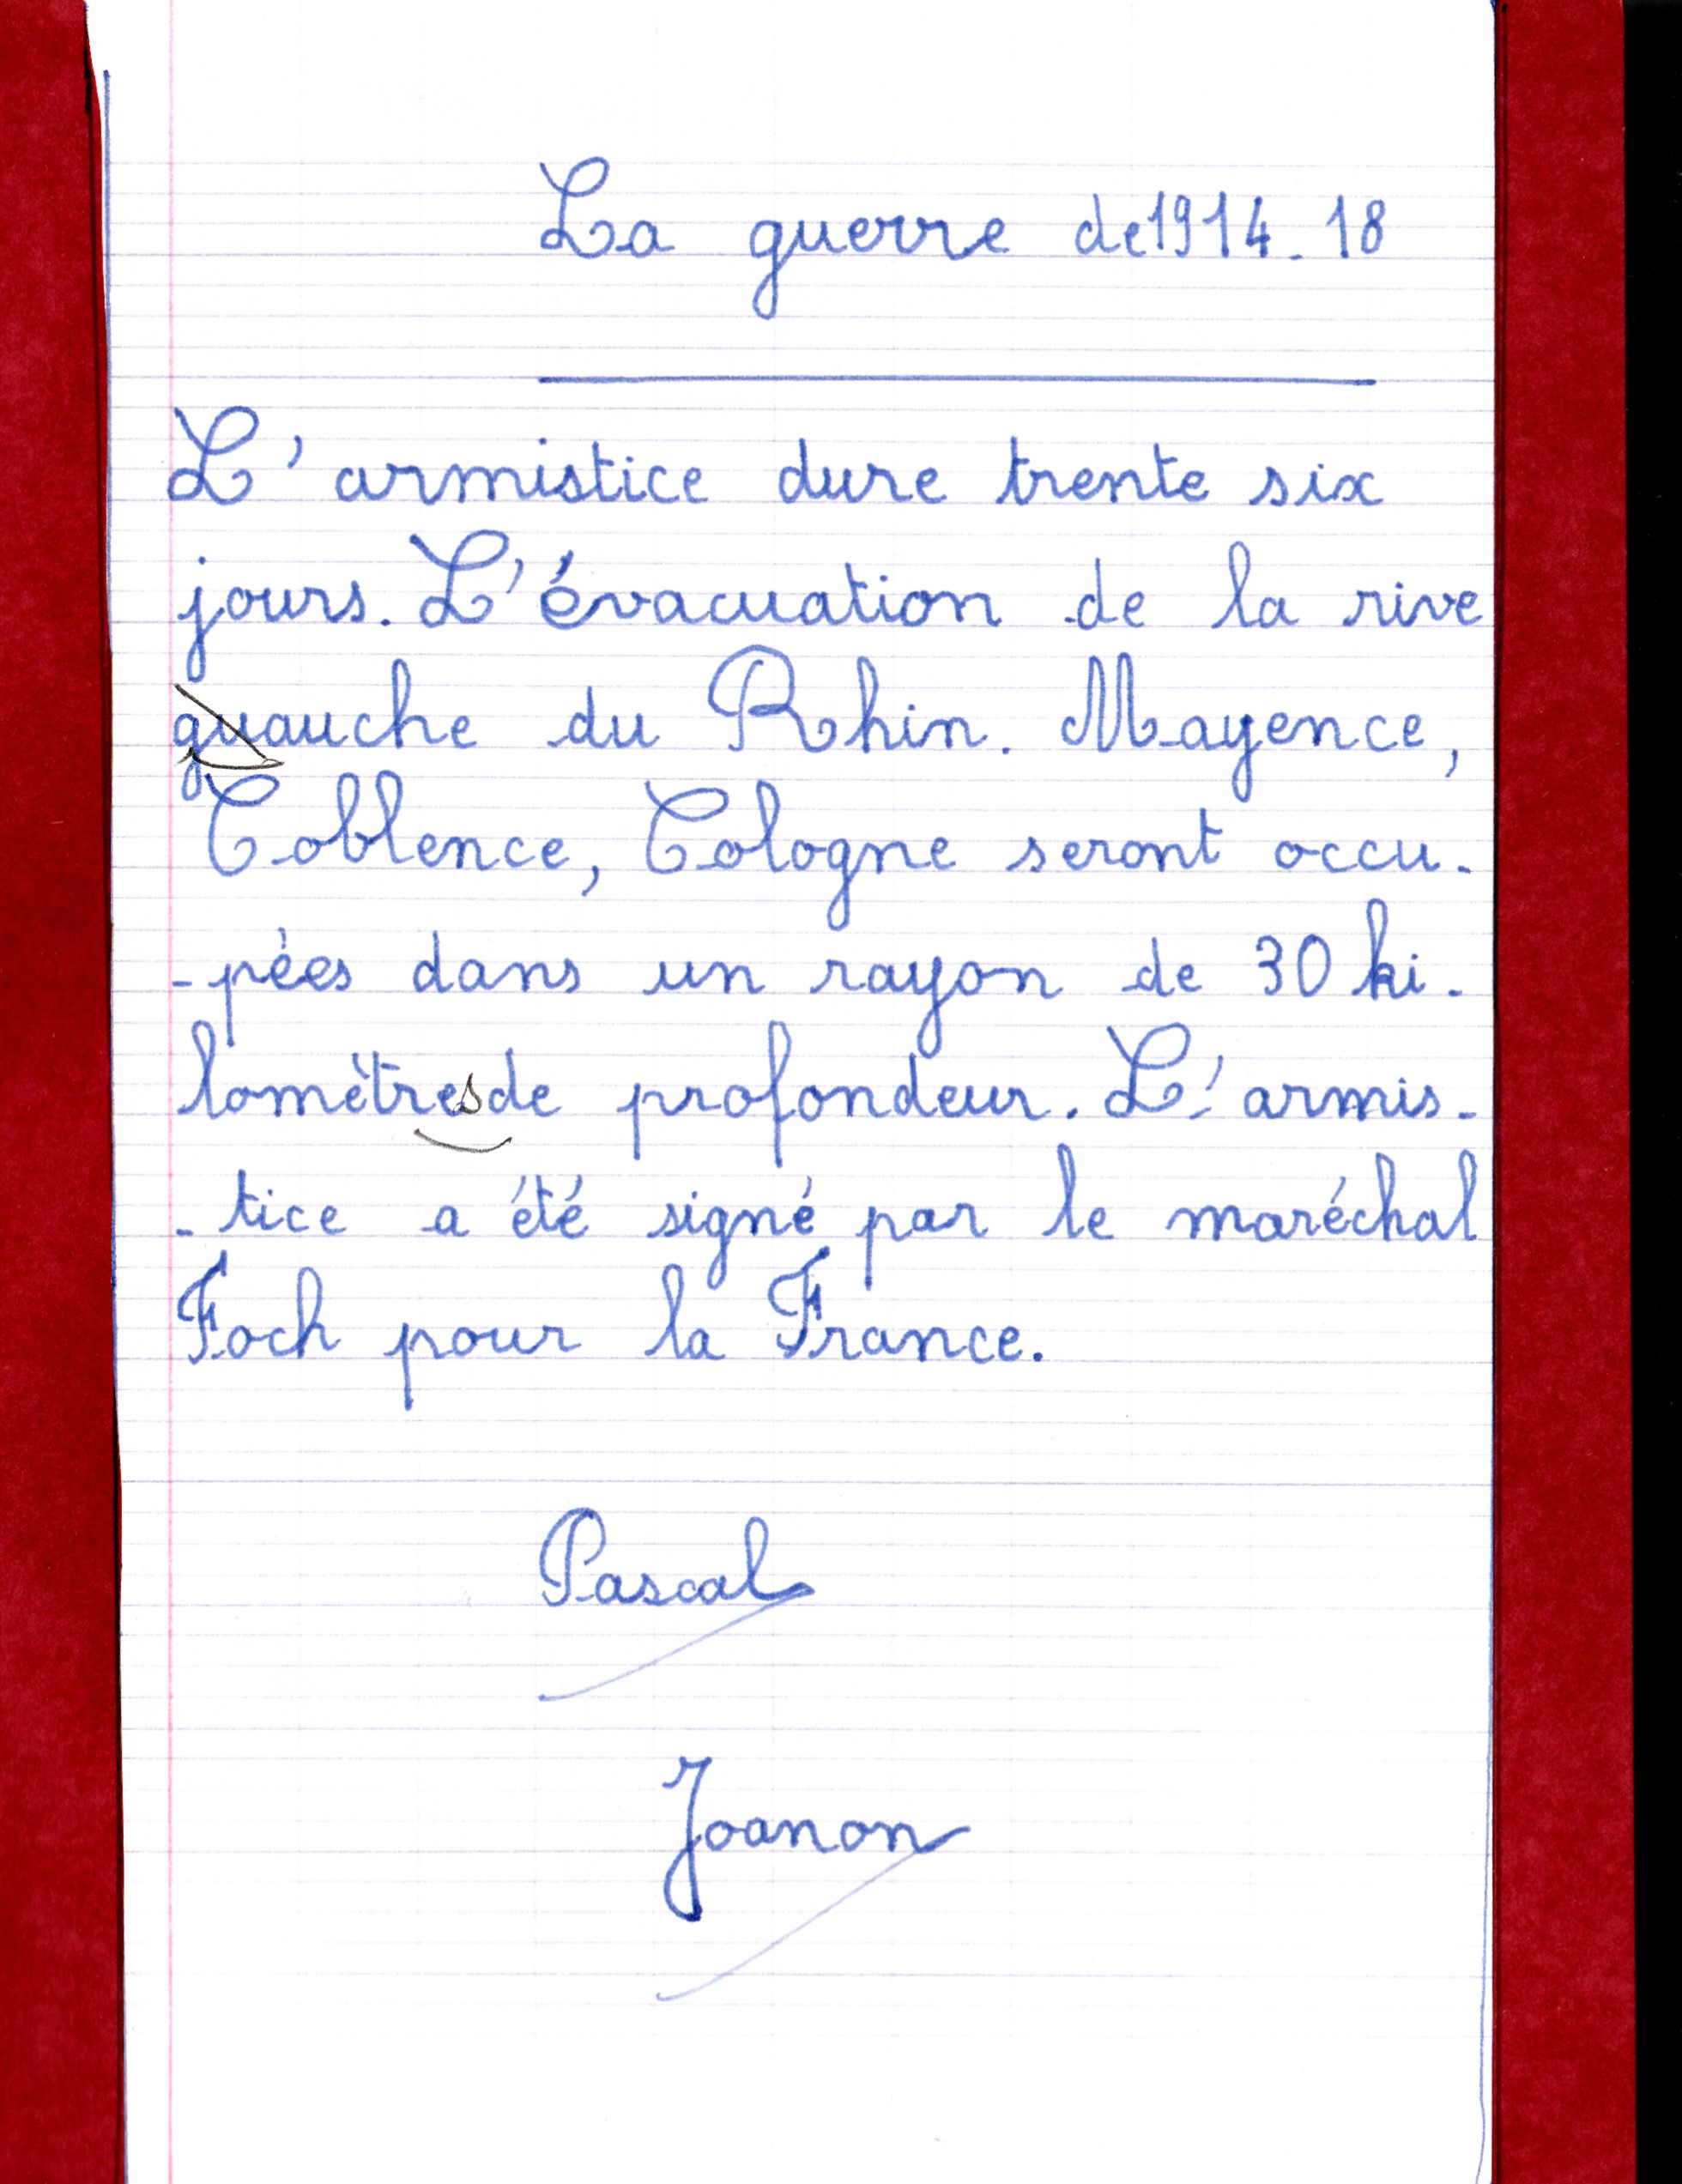 La guerre de 1914-18
L'armistice dure trente six
jours. L'évacuation de la rive
guauche du Rhin. Mayence,
Coblence, Cologne seront occu-
-pées dans un rayon de 30 ki-
lomètres de profondeur. L'armis-
-tice a été signé par le maréchal
Foch pour la France.
Pascal
Joanon